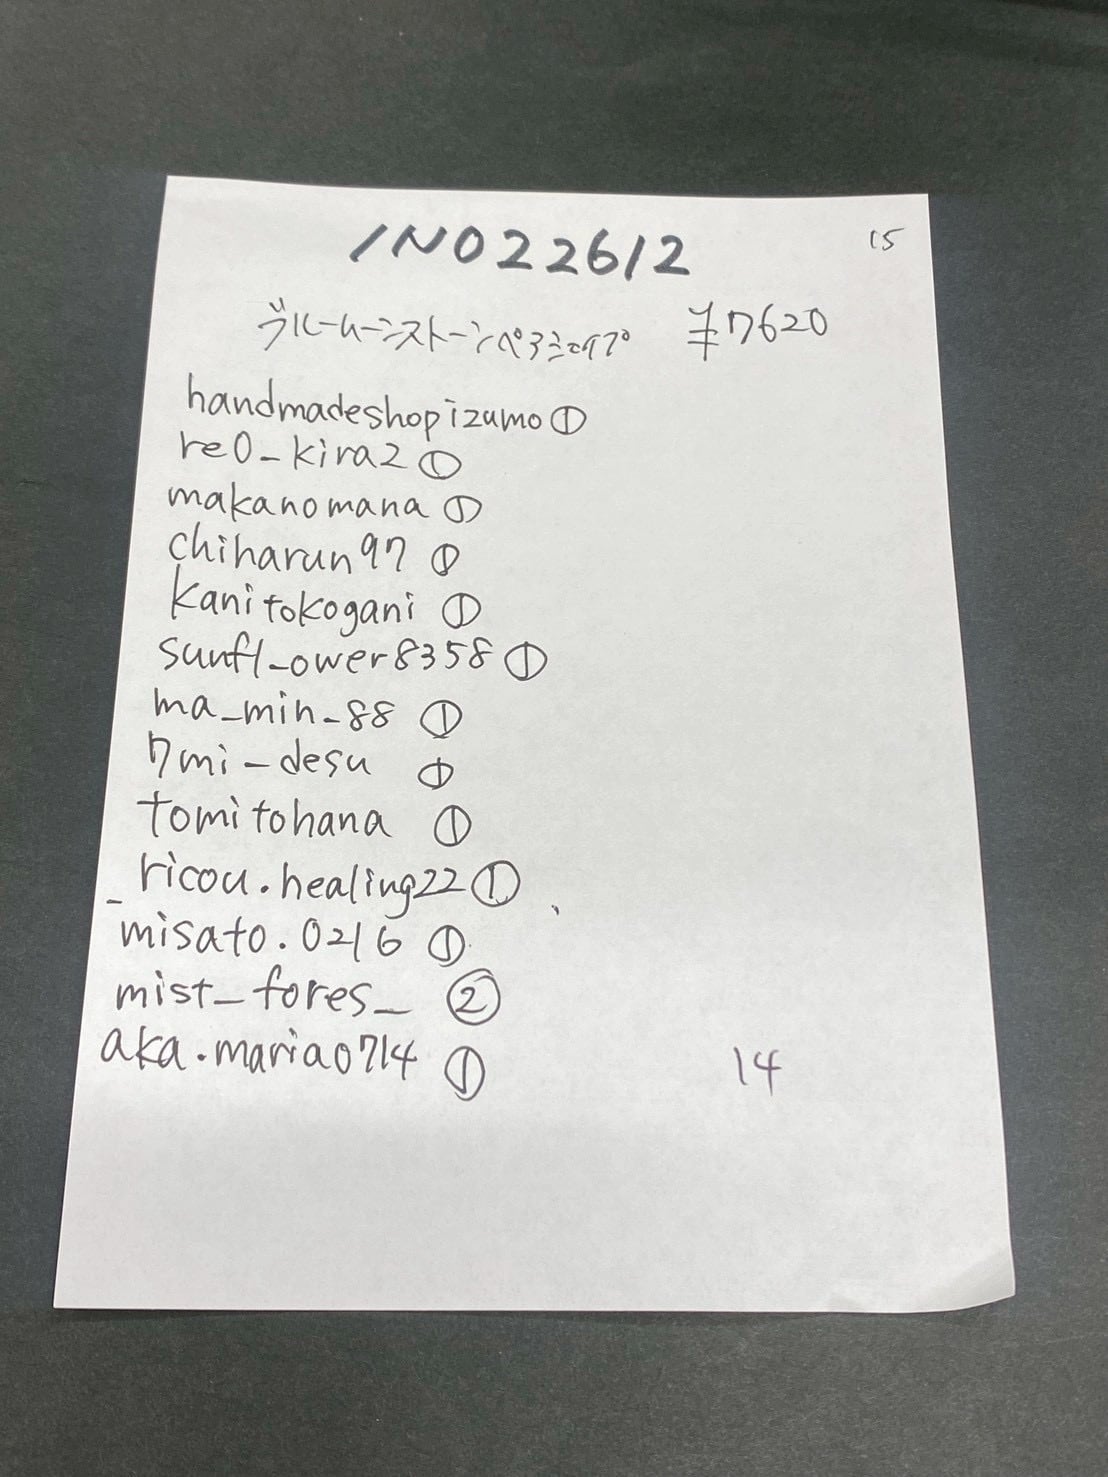 INO22612
15
ブルームーンストーンペアシェイプ ¥7620
handmadeshopizumo①
re0_kira2①
makanomana①
chiharun97①
kanitokogani①
sunfl_ower8358①
ma_min_88①
7mi_desu①
tomitohana①
ricou.healing22①
misato.0216①
mist_fores_②
aka.maria0714①
14